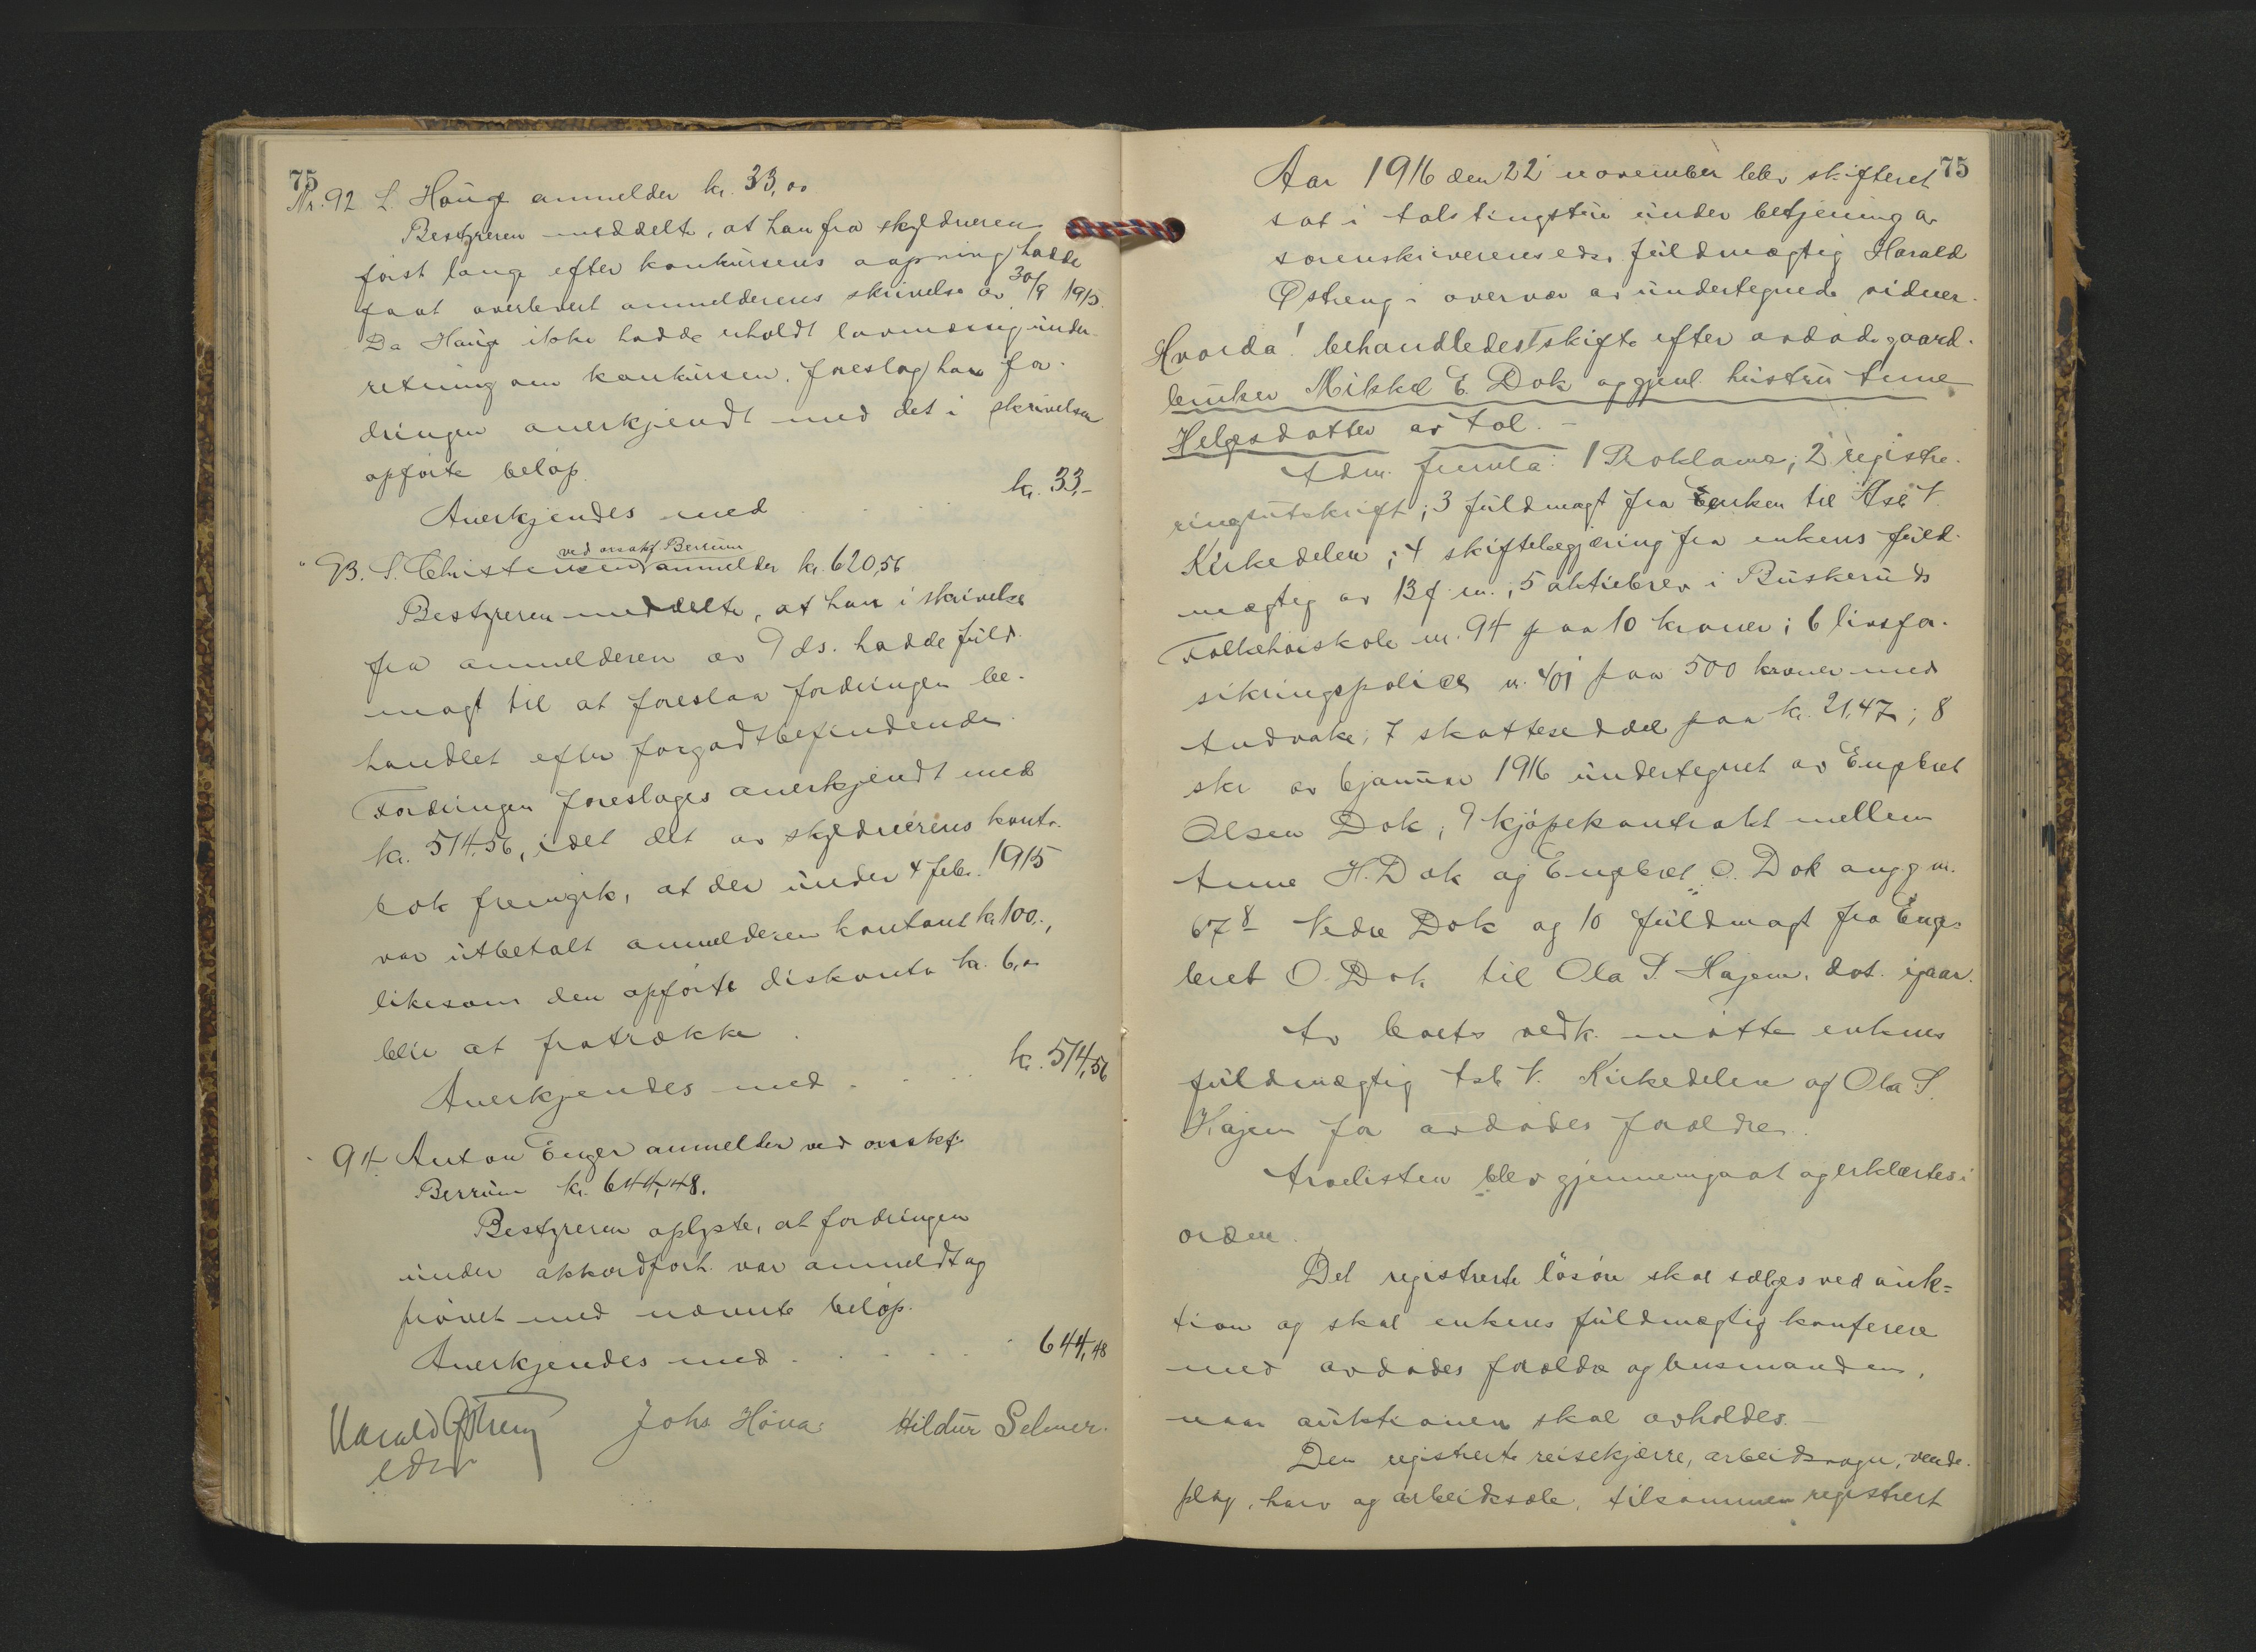 75
Nr. 92 L. Hauge anmelder kr. 33,00
Bestyreren meddelte, at han fra skyldneren
først lange efter konkursens aapning hadde
faat overlevert anmelderens skrivelse av 30/9 1915.
Da Hauge ikke hadde erholdt lovmæssig under-
retning om konkursen, foreslog han for-
dringen anerkjendt med det i skrivelsen
opførte beløp.
Anerkjendes med kr. 33,-
" 93. S. Christensen ved orsakf. Berrum anmelder kr. 620,56
Bestyreren meddelte, at han i skrivelse
fra anmelderen av 9 ds. hadde fuld-
magt til at foreslaa fordringen be-
handlet efter forgodtbefindende.
Fordringen foreslages anerkjendt med
kr. 514,56, idet det av skyldnerens konto-
bok fremgik, at der under 4 febr. 1915
var utbetalt anmelderen kontant kr. 100.-,
likesom den opførte diskonto kr. 6,00
blir at fratrække.
Anerkjendes med kr. 514,56
" 94 Anton Enger anmelder ved orsakf.
Berrum kr. 644,48.
Bestyreren oplyste, at fordringen
under akkordforh. var anmeldt og
prøvet med nævnte beløp.
Anerkjendes med 644,48
Harald Østreng Johs Høva Hildur Selmer.
edsv
75
Aar 1916 den 22 november blev skifteret
sat i Aals tingstue under betjening av
sorenskriverens edsv. fuldmægtig Harald
Østreng i overvær av undertegnede vidner.
Hvorda! behandledes skifte efter avdøde gaard-
bruker Mikkel E. Dok og gjenl. hustru Anne
Helgesdatter av Aal. -
Adm. fremla: 1 Proklama; 2 registre-
ringsutskrift; 3 fuldmagt fra Enken til Asle V.
Kirkedelen; 4 skiftebegjæring fra enkens fuld-
mægtig av 13 f. m.; 5 aktiebrev i Buskeruds
Folkehøiskole nr. 94 paa 10 kroner; 6 livsfor-
sikringspolice nr. 401 paa 500 kroner med
Andvake; 7 skatteseddel paa kr. 21,47; 8
skr av 6 januar 1916 undertegnet av Engebret
Olsen Dok; 9 kjøpekontrakt mellem
Anne H. Dok og Engebret O. Dok ang g. nr.
67 8 Nedre Dok og 10 fuldmagt fra Enge-
bret O. Dok til Ola S. Hagen, dat. igaar.
Av boets vedk. møtte enkens
fuldmægtig Asle V. Kirkedelen og Ola S.
Hagen for avdødes forældre.
Arvelisten blev gjennemgaat og erklærtes i
orden.
Det registrerte løsøre skal sælges ved auk-
tion og skal enkens fuldmægtig konferere
med avdødes forældre og lensmanden,
naar auktionen skal avholdes. -
Den registrerte reisekjærre, arbeidsvogn, vende-
plog, harv og arbeidssæle, tilsammen registrert